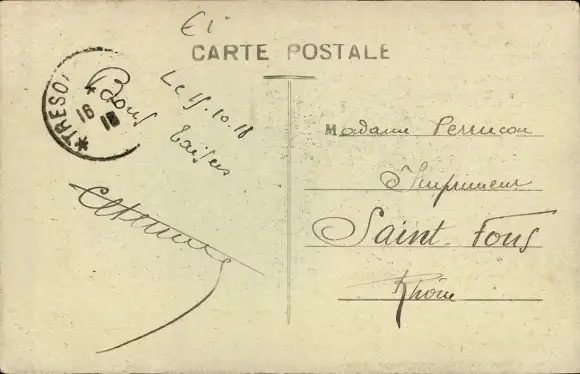 CARTE POSTALE
*TRESOR
*
16
18
Le 15.10.18
Bons
baisers
Madame Perrucon
Imprimeur
Saint-Fons
Rhône